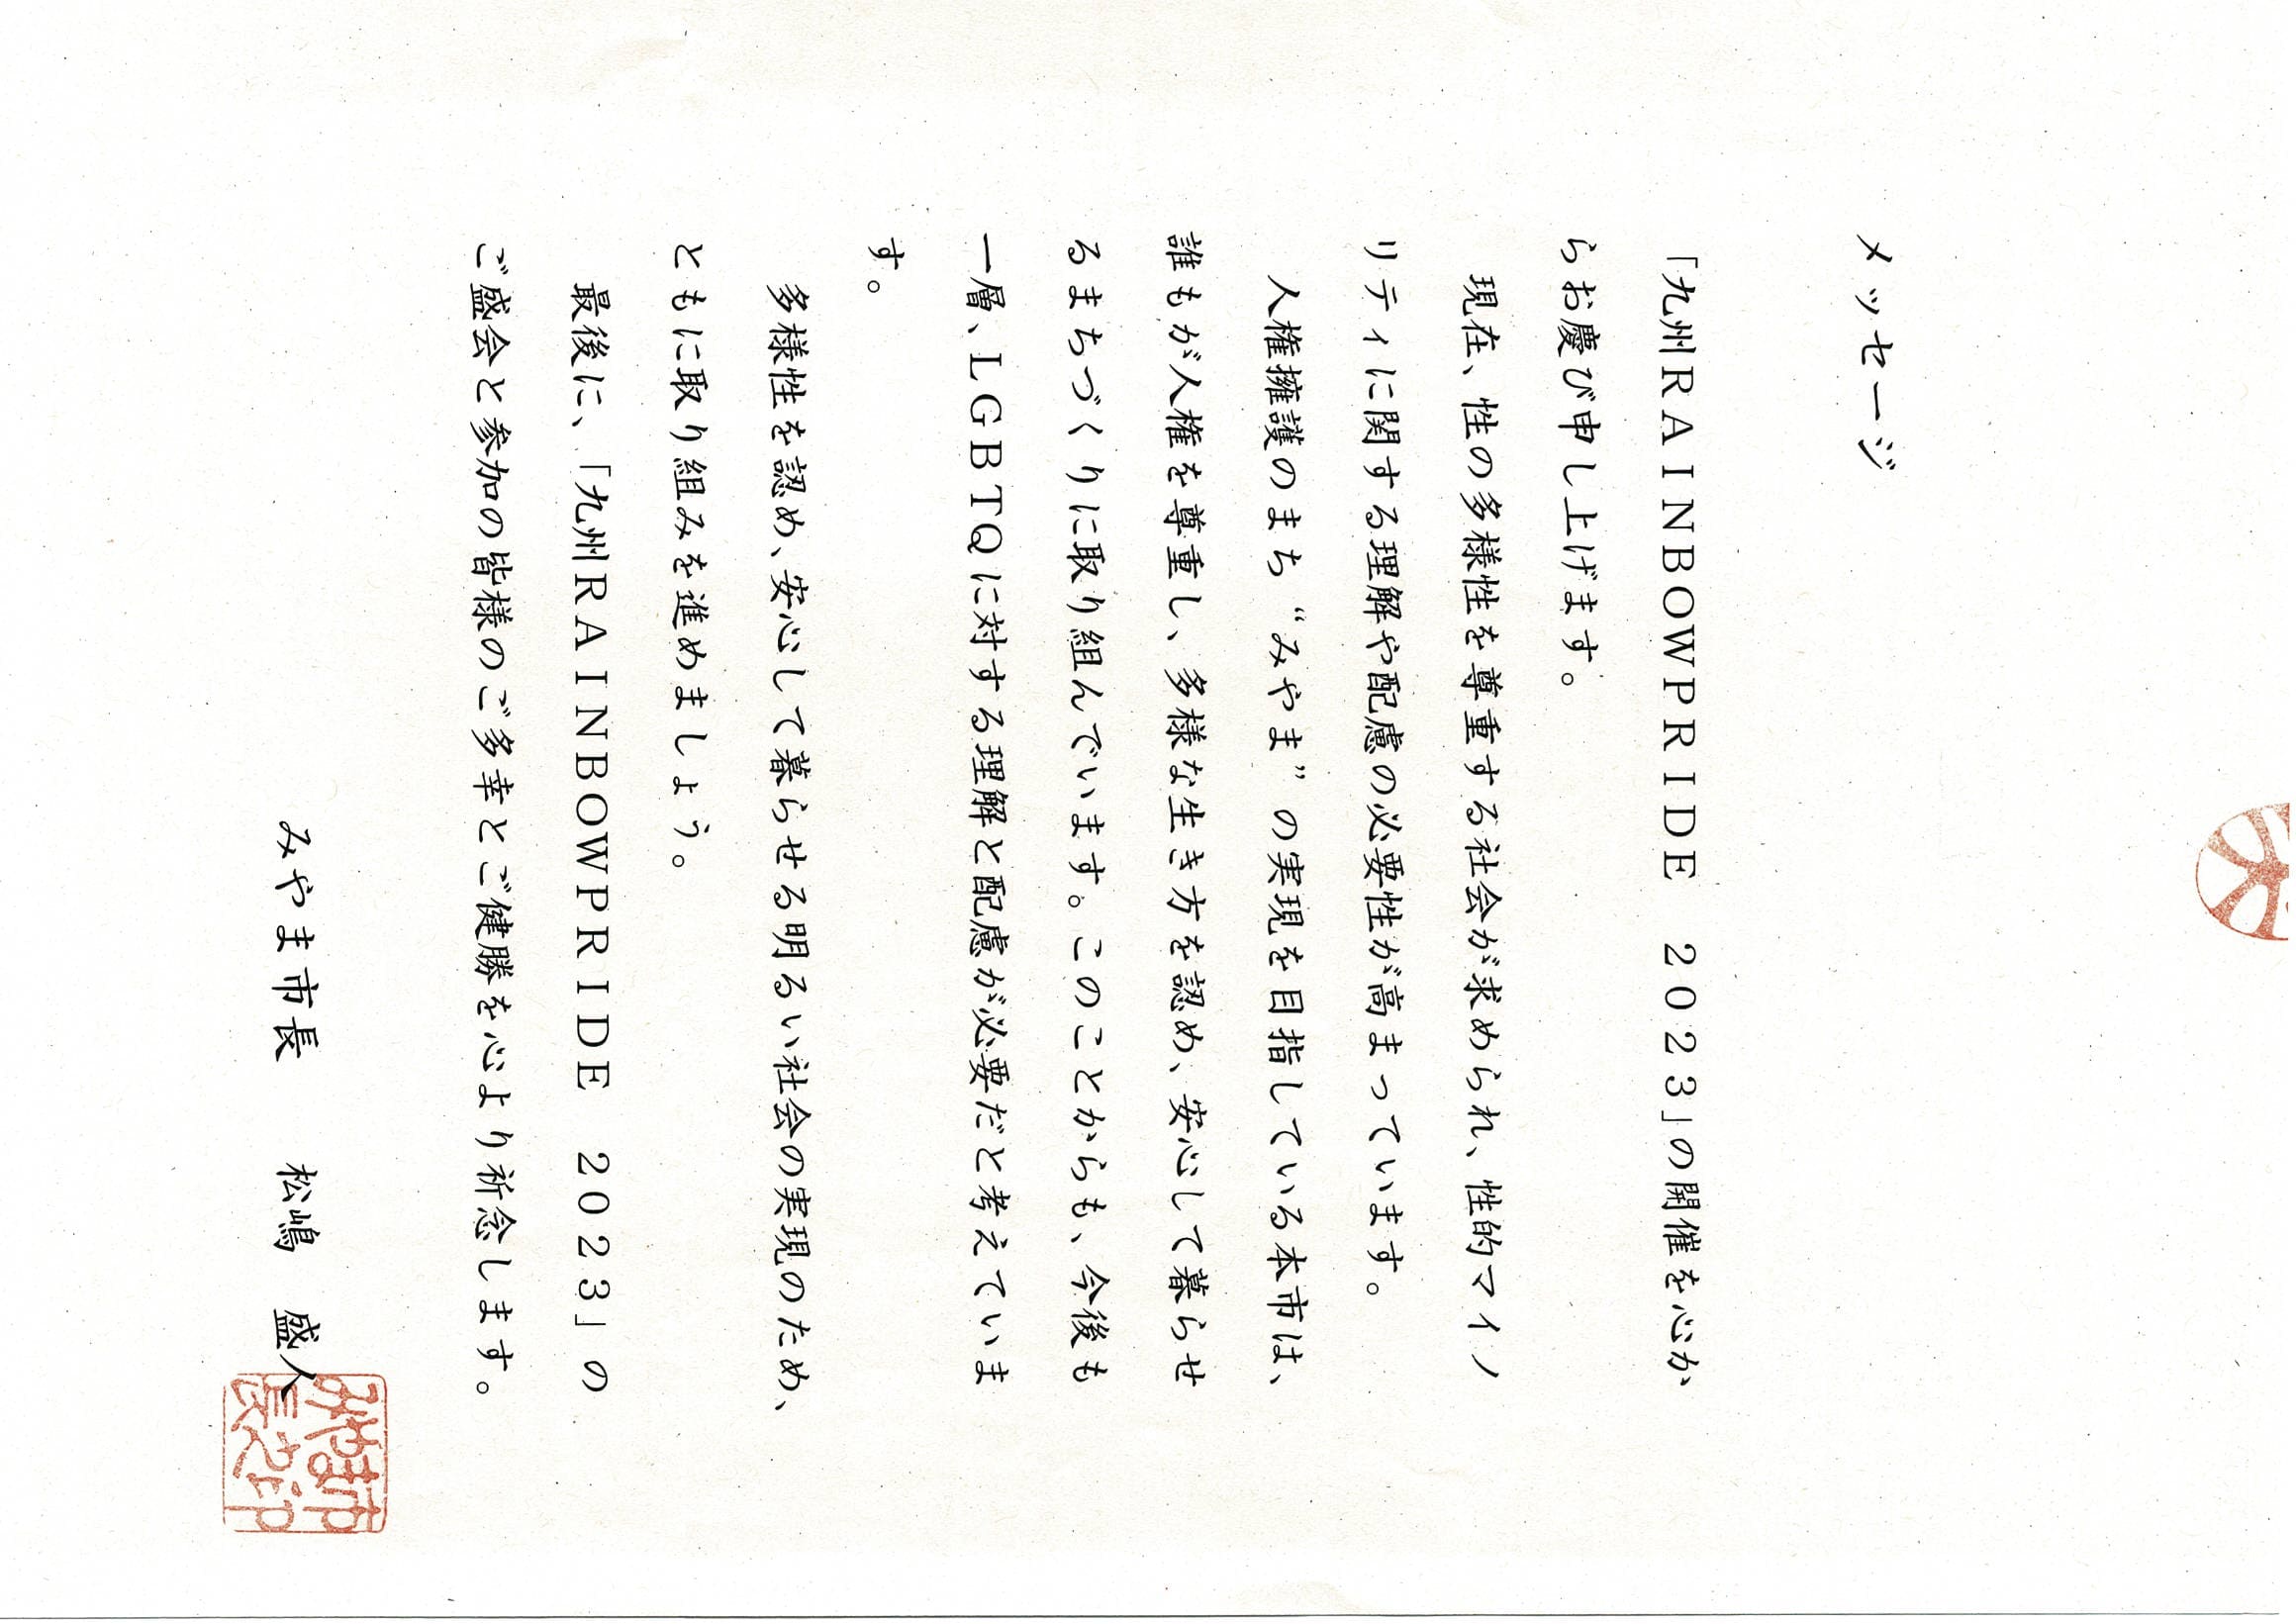 メッセージ
「九州ＲＡＩＮＢＯＷＰＲＩＤＥ　２０２３」の開催を心か
らお慶び申し上げます。
現在、性の多様性を尊重する社会が求められ、性的マイノ
リティに関する理解や配慮の必要性が高まっています。
人権擁護のまち“みやま”の実現を目指している本市は、
誰もが人権を尊重し、多様な生き方を認め、安心して暮らせ
るまちづくりに取り組んでいます。このことからも、今後も
一層、ＬＧＢＴＱに対する理解と配慮が必要だと考えていま
す。
多様性を認め、安心して暮らせる明るい社会の実現のため、
ともに取り組みを進めましょう。
最後に、「九州ＲＡＩＮＢＯＷＰＲＩＤＥ　２０２３」の
ご盛会と参加の皆様のご多幸とご健勝を心より祈念します。
みやま市長　松嶋　盛人
みやま市
長之印